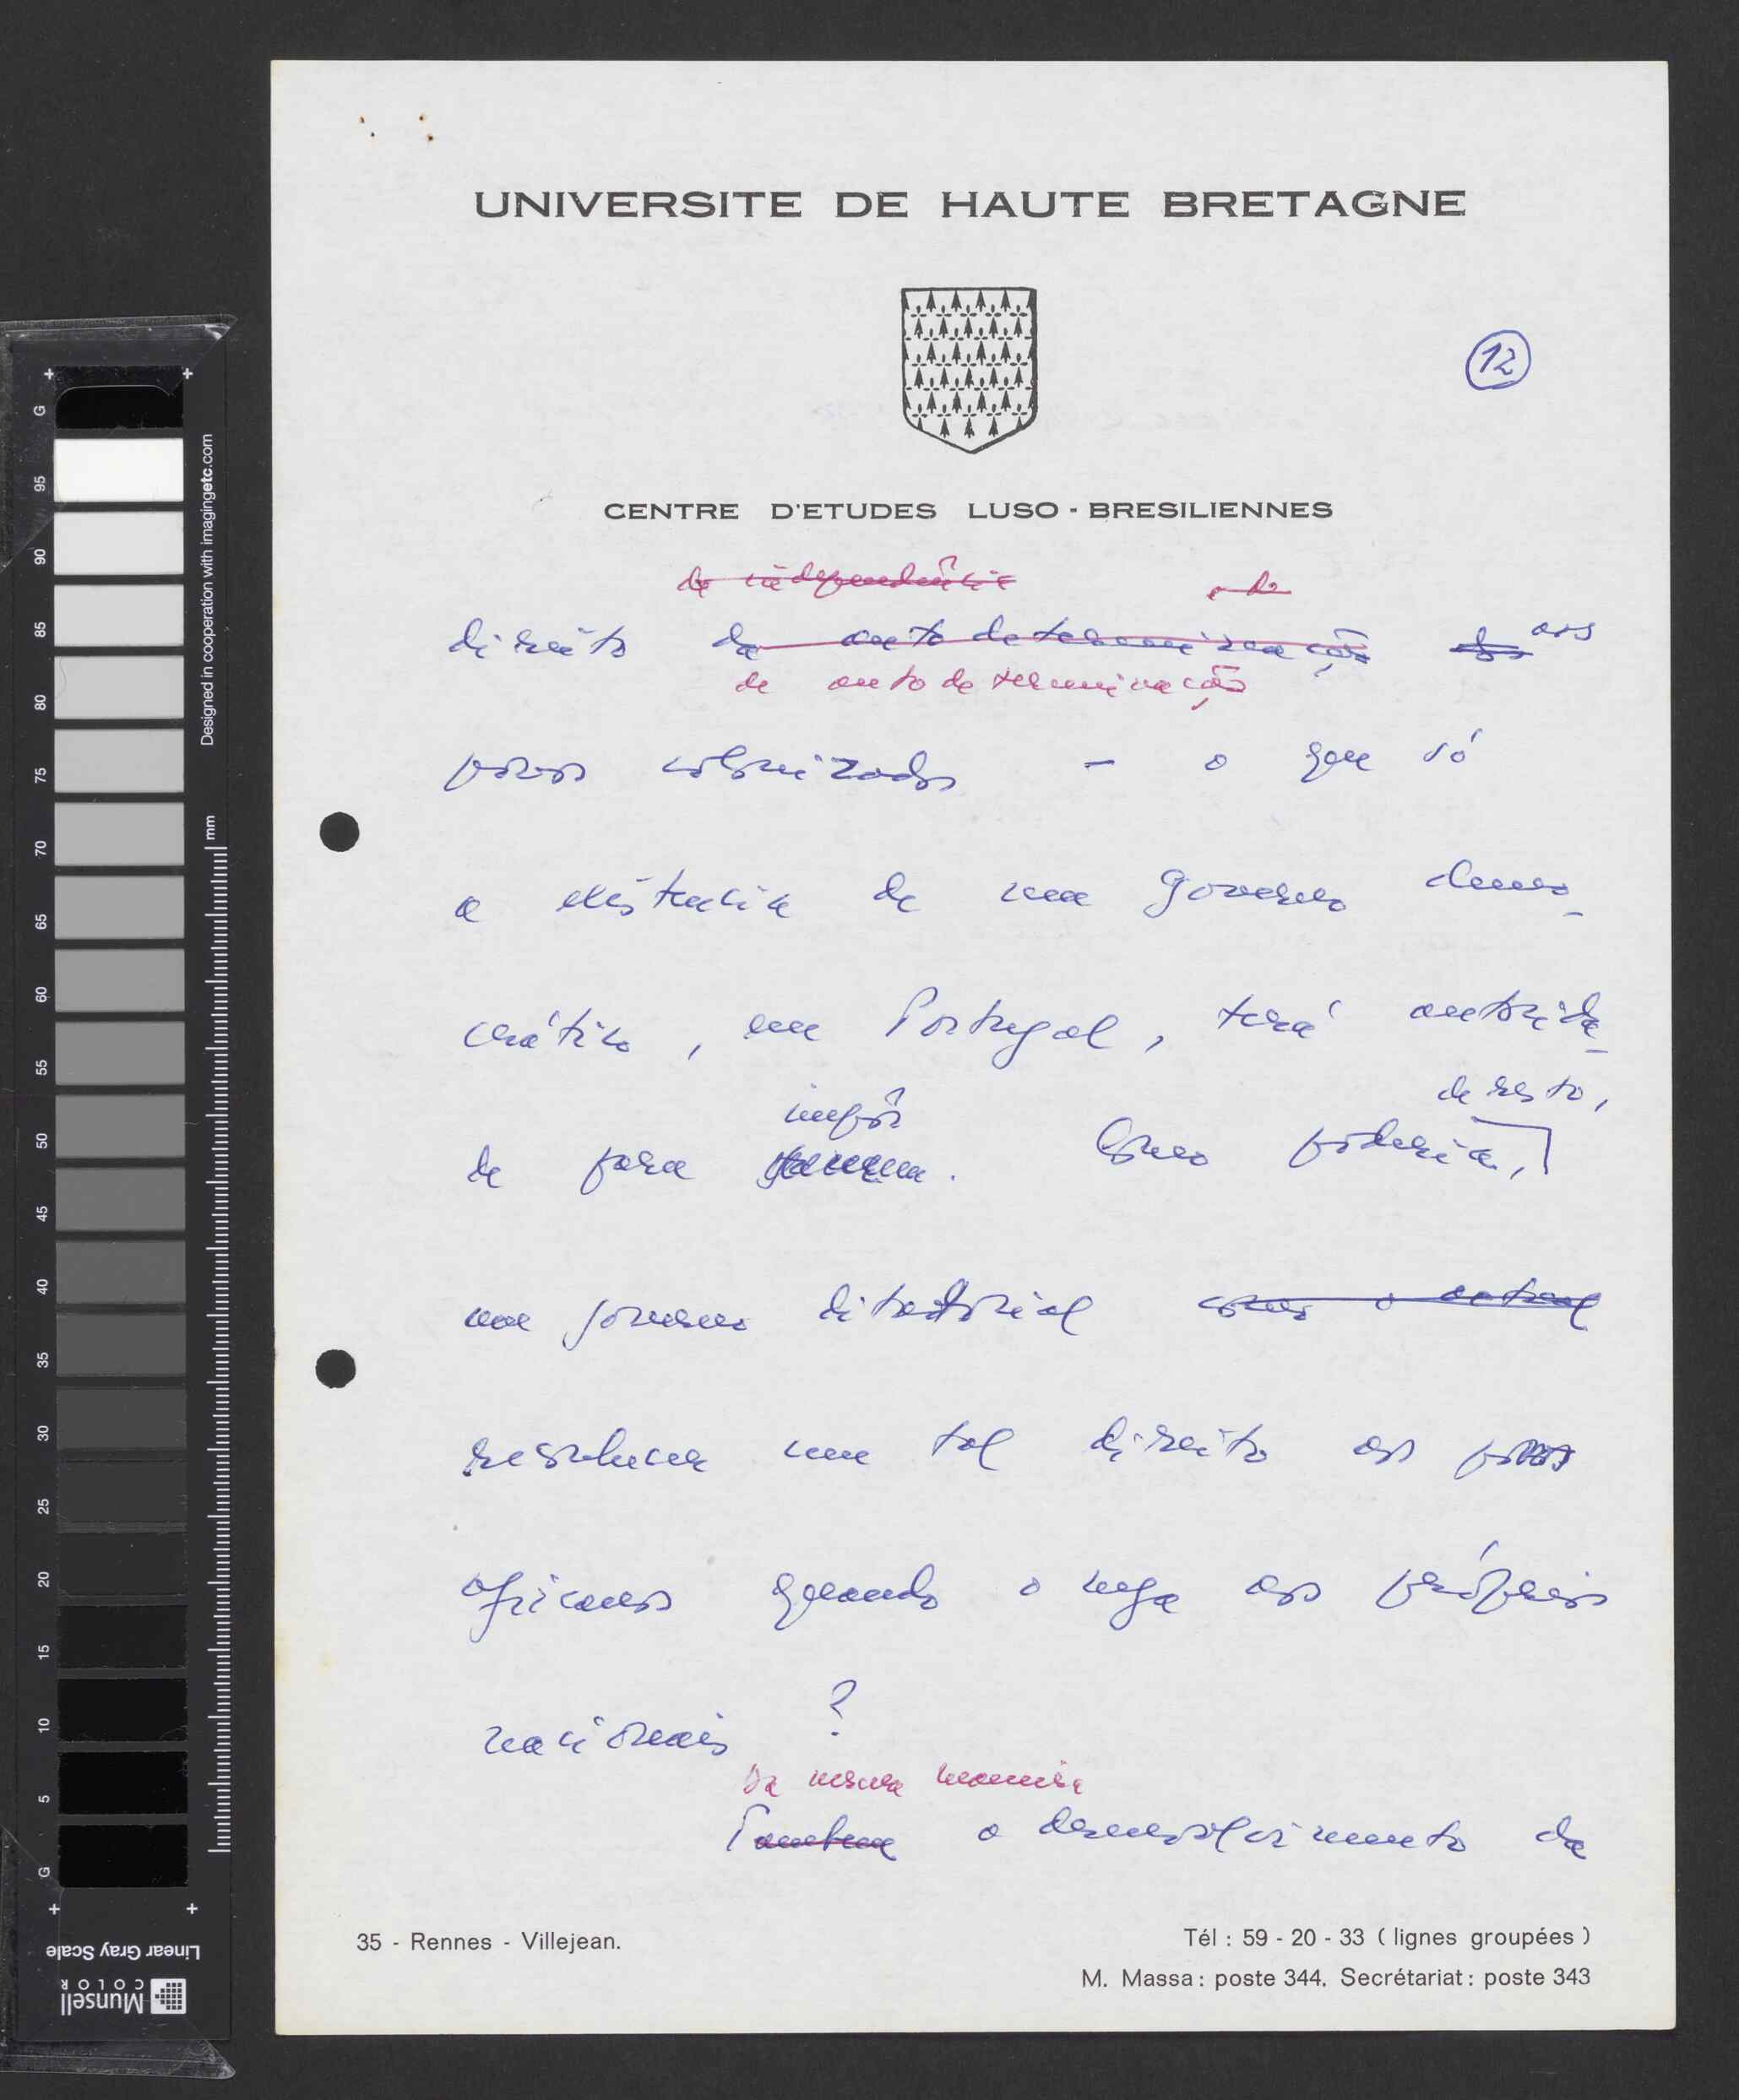 UNIVERSITE DE HAUTE BRETAGNE
12
CENTRE D'ETUDES LUSO - BRESILIENNES
de independência de
direito da auto determinação dos aos
de auto determinação
povos colonizados - o que só
a existência de um governo demo_
crático, em Portugal, terá autorida_
impôr de resto,
de para . Como poderia,
um governo ditatorial como o actual
reconhecer um tal direito aos povos
africanos quando o nega aos próprios
nacionais ?
Da mesma maneira
Também o desenvolvimento da
35 - Rennes - Villejean.
Tél : 59 - 20 - 33 ( lignes groupées )
M. Massa : poste 344. Secrétariat : poste 343
G
95
90
85
80
75
70
65
60
55
50
45
40
35
30
25
20
15
10
5
G
mm
Designed in cooperation with imagingetc.com
Linear Gray Scale
Munsell
COLOR